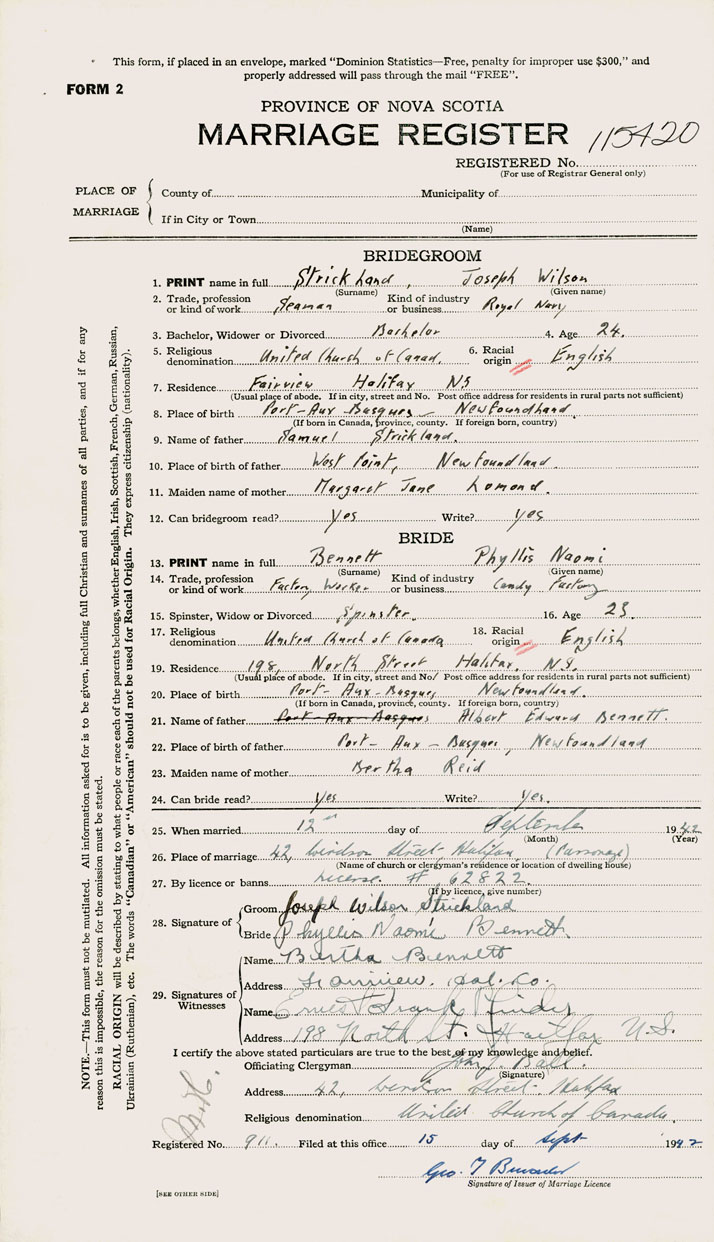 This form, if placed in an envelope, marked "Dominion Statistics—Free, penalty for improper use $300," and
properly addressed will pass through the mail "FREE".
FORM 2
PROVINCE OF NOVA SCOTIA
MARRIAGE REGISTER 115420
REGISTERED No.
(For use of Registrar General only)
PLACE OF MARRIAGE
County of Municipality of
If in City or Town
(Name)
BRIDEGROOM
1. PRINT name in full Strickland, Joseph Wilson
(Surname) (Given name)
2. Trade, profession or kind of work Seaman Kind of industry or business Royal Navy
3. Bachelor, Widower or Divorced Bachelor 4. Age 24.
5. Religious denomination United Church of Canad. 6. Racial origin English
7. Residence Fairview Halifax NS
(Usual place of abode. If in city, street and No. Post office address for residents in rural parts not sufficient)
8. Place of birth Port-Aux-Basques Newfoundland
(If born in Canada, province, county. If foreign born, country)
9. Name of father Samuel Strickland.
10. Place of birth of father West Point, Newfoundland
11. Maiden name of mother Margaret Jane Lomond.
12. Can bridegroom read? Yes Write? Yes
BRIDE
13. PRINT name in full Bennett Phyllis Naomi
(Surname) (Given name)
14. Trade, profession or kind of work Factory Worker Kind of industry or business Candy Factory
15. Spinster, Widow or Divorced Spinster. 16. Age 23
17. Religious denomination United Church of Canada 18. Racial origin English
19. Residence 198, North Street Halifax. N.S.
(Usual place of abode. If in city, street and No. Post office address for residents in rural parts not sufficient)
20. Place of birth Port-Aux-Basques Newfoundland.
(If born in Canada, province, county. If foreign born, country)
21. Name of father Port-Aux-Basques Albert Edward Bennett.
22. Place of birth of father Port-Aux-Basques, Newfoundland
23. Maiden name of mother Bertha Reid
24. Can bride read? Yes Write? Yes.
25. When married 12th day of September 1942
(Month) (Year)
26. Place of marriage 42, Windsor Street, Halifax (Parsonage)
(Name of church or clergyman's residence or location of dwelling house)
27. By licence or banns License # 62822.
(If by licence, give number)
28. Signature of
Groom Joseph Wilson Strickland
Bride Phyllis Naomi Bennett
29. Signatures of Witnesses
Name Bertha Bennett
Address Fairview. Hal. Co.
Name Ernest Frank
Address 198 North St. Halifax N.S.
I certify the above stated particulars are true to the best of my knowledge and belief.
Officiating Clergyman John
(Signature)
Address 42, Windsor Street. Halifax
Religious denomination United Church of Canada.
Registered No. 911. Filed at this office 15 day of Sept 1942
Geo. T
Signature of Issuer of Marriage Licence
[SEE OTHER SIDE]
NOTE.—This form must not be mutilated. All information asked for is to be given, including full Christian and surnames of all parties, and if for any
reason this is impossible, the reason for the omission must be stated.
RACIAL ORIGIN will be described by stating to what people or race each of the parents belongs, whether English, Irish, Scottish, French, German, Russian,
Ukrainian (Ruthenian), etc. The words "Canadian" or "American" should not be used for Racial Origin. They express citizenship (nationality).